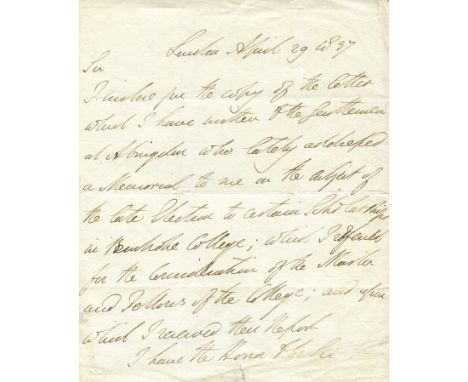 London April 29 1837
Sir
I inclose for the copy of the letter
which I have written to the Gentlemen
at Abingdon who lately addressed
a Memorial to me on the subject of
the late Election to certain Scholarships
in Pembroke College; which I referred
for the Consideration of the Master
and Fellows of the College; and upon
which I received their Report.
I have the Honor to be Sir